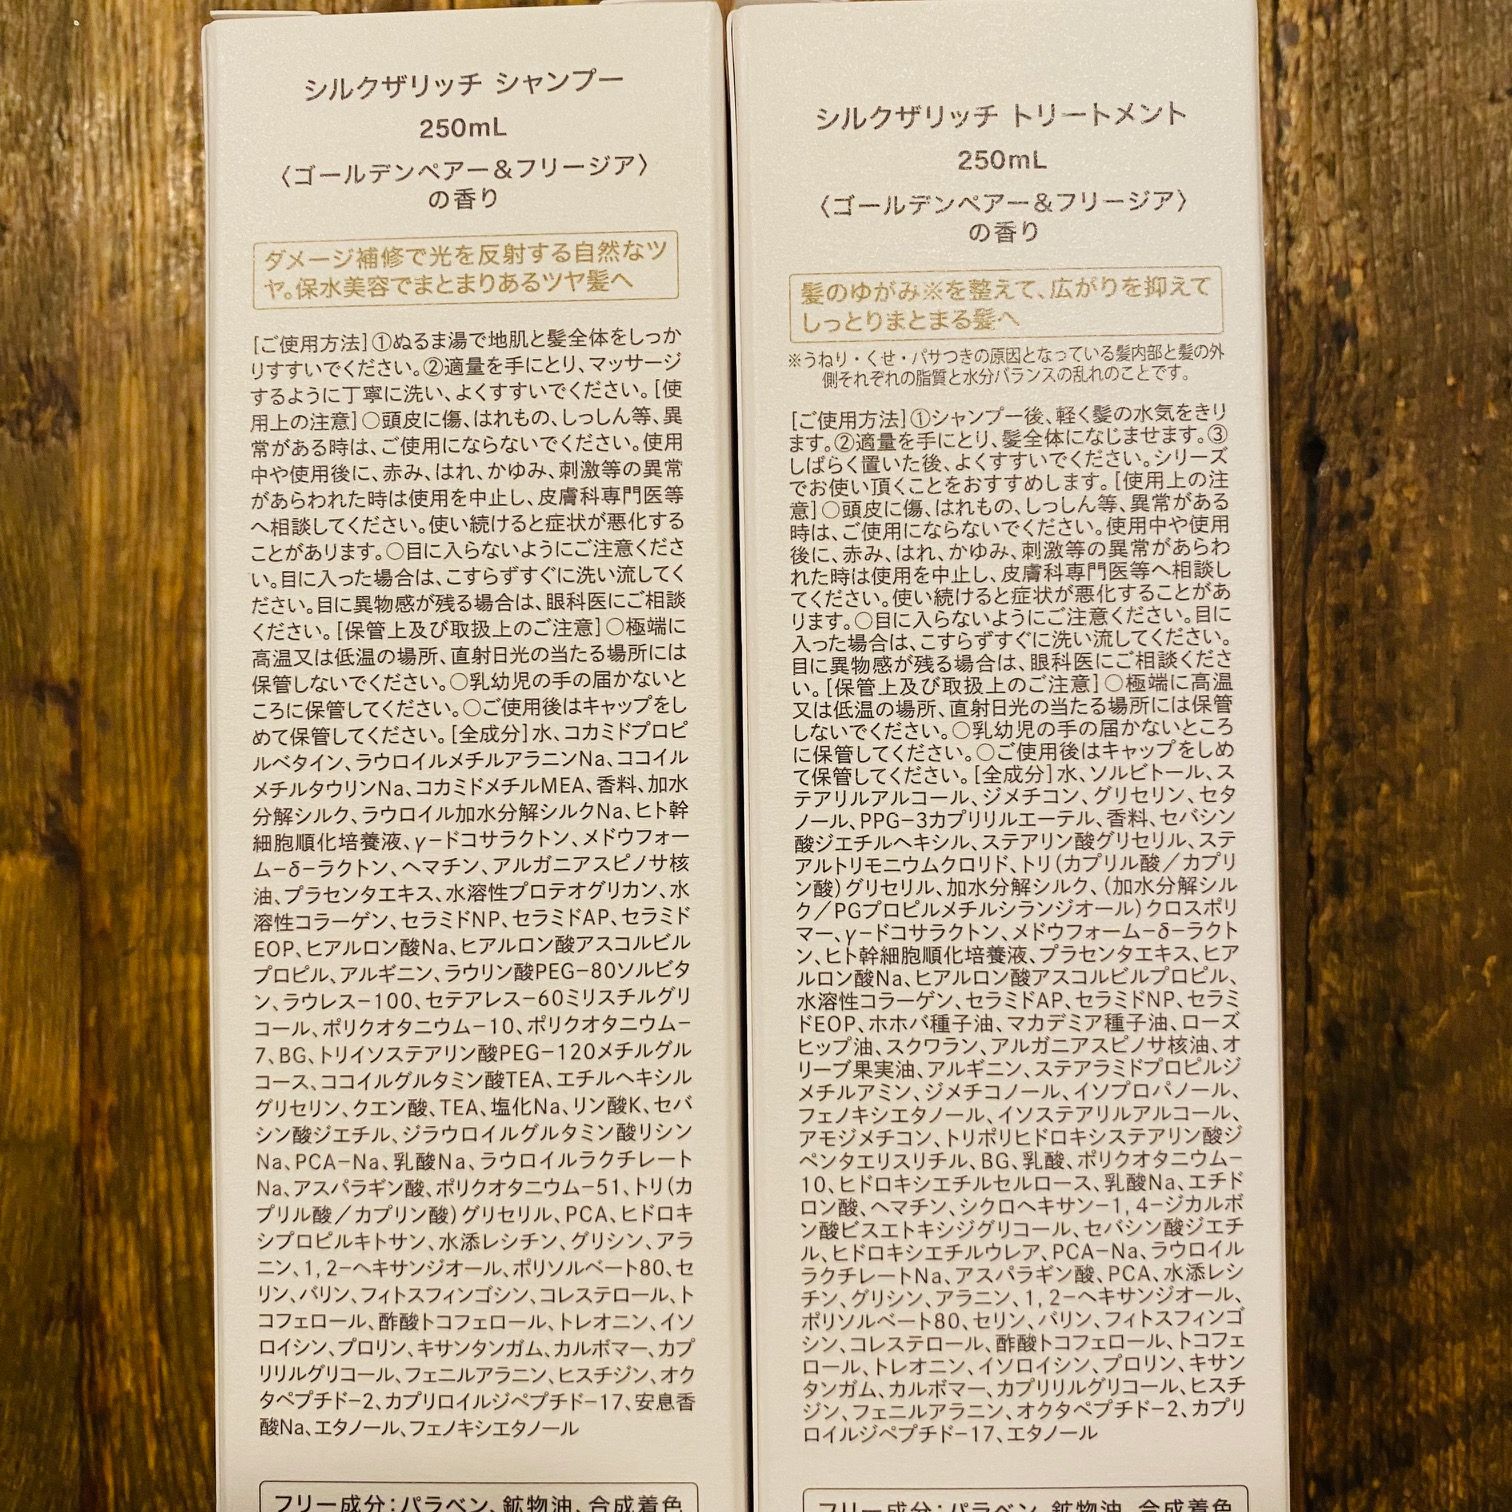 シルクザリッチ シャンプー
250mL
〈ゴールデンペアー&フリージア〉
の香り
ダメージ補修で光を反射する自然なツ
ヤ。保水美容でまとまりあるツヤ髪へ
[ご使用方法]①ぬるま湯で地肌と髪全体をしっか
りすすいでください。②適量を手にとり、マッサージ
するように丁寧に洗い、よくすすいでください。[使
用上の注意]○頭皮に傷、はれもの、しっしん等、異
常がある時は、ご使用にならないでください。使用
中や使用後に、赤み、はれ、かゆみ、刺激等の異常
があらわれた時は使用を中止し、皮膚科専門医等
へ相談してください。使い続けると症状が悪化する
ことがあります。○目に入らないようにご注意くださ
い。目に入った場合は、こすらずすぐに洗い流してく
ださい。目に異物感が残る場合は、眼科医にご相談
ください。[保管上及び取扱上のご注意]○極端に
高温又は低温の場所、直射日光の当たる場所には
保管しないでください。○乳幼児の手の届かないと
ころに保管してください。○ご使用後はキャップをし
めて保管してください。[全成分]水、コカミドプロピ
ルベタイン、ラウロイルメチルアラニンNa、ココイル
メチルタウリンNa、コカミドメチルMEA、香料、加水
分解シルク、ラウロイル加水分解シルクNa、ヒト幹
細胞順化培養液、γ-ドコサラクトン、メドウフォー
ム-δ-ラクトン、ヘマチン、アルガニアスピノサ核
油、プラセンタエキス、水溶性プロテオグリカン、水
溶性コラーゲン、セラミドNP、セラミドAP、セラミド
EOP、ヒアルロン酸Na、ヒアルロン酸アスコルビル
プロピル、アルギニン、ラウリン酸PEG-80ソルビタ
ン、ラウレス-100、セテアレス-60ミリスチルグリ
コール、ポリクオタニウム-10、ポリクオタニウム-
7、BG、トリイソステアリン酸PEG-120メチルグル
コース、ココイルグルタミン酸TEA、エチルヘキシル
グリセリン、クエン酸、TEA、塩化Na、リン酸K、セバ
シン酸ジエチル、ジラウロイルグルタミン酸リシン
Na、PCA-Na、乳酸Na、ラウロイルラクチレート
Na、アスパラギン酸、ポリクオタニウム-51、トリ(カ
プリル酸/カプリン酸)グリセリル、PCA、ヒドロキ
シプロピルキトサン、水添レシチン、グリシン、アラ
ニン、1,2-ヘキサンジオール、ポリソルベート80、セ
リン、バリン、フィトスフィンゴシン、コレステロール、ト
コフェロール、酢酸トコフェロール、トレオニン、イソ
ロイシン、プロリン、キサンタンガム、カルボマー、カプ
リリルグリコール、フェニルアラニン、ヒスチジン、オク
タペプチド-2、カプリロイルジペプチド-17、安息香
酸Na、エタノール、フェノキシエタノール
フリー成分:パラベン、鉱物油、合成着色
シルクザリッチ トリートメント
250mL
〈ゴールデンペアー&フリージア〉
の香り
髪のゆがみ※を整えて、広がりを抑えて
しっとりまとまる髪へ
※うねり・くせ・パサつきの原因となっている髪内部と髪の外
側それぞれの脂質と水分バランスの乱れのことです。
[ご使用方法]①シャンプー後、軽く髪の水気をきり
ます。②適量を手にとり、髪全体になじませます。③
しばらく置いた後、よくすすいでください。シリーズ
でお使い頂くことをおすすめします。[使用上の注
意]○頭皮に傷、はれもの、しっしん等、異常がある
時は、ご使用にならないでください。使用中や使用
後に、赤み、はれ、かゆみ、刺激等の異常があらわ
れた時は使用を中止し、皮膚科専門医等へ相談し
てください。使い続けると症状が悪化することがあ
ります。○目に入らないようにご注意ください。目に
入った場合は、こすらずすぐに洗い流してください。
目に異物感が残る場合は、眼科医にご相談くださ
い。[保管上及び取扱上のご注意]○極端に高温
又は低温の場所、直射日光の当たる場所には保管
しないでください。○乳幼児の手の届かないところ
に保管してください。○ご使用後はキャップをしめ
て保管してください。[全成分]水、ソルビトール、ス
テアリルアルコール、ジメチコン、グリセリン、セタ
ノール、PPG-3カプリリルエーテル、香料、セバシン
酸ジエチルヘキシル、ステアリン酸グリセリル、ステ
アルトリモニウムクロリド、トリ(カプリル酸/カプリ
ン酸)グリセリル、加水分解シルク、(加水分解シル
ク/PGプロピルメチルシランジオール)クロスポリ
マー、γ-ドコサラクトン、メドウフォーム-δ-ラクト
ン、ヒト幹細胞順化培養液、プラセンタエキス、ヒア
ルロン酸Na、ヒアルロン酸アスコルビルプロピル、
水溶性コラーゲン、セラミドAP、セラミドNP、セラミ
ドEOP、ホホバ種子油、マカデミア種子油、ローズ
ヒップ油、スクワラン、アルガニアスピノサ核油、オ
リーブ果実油、アルギニン、ステアラミドプロピルジ
メチルアミン、ジメチコノール、イソプロパノール、
フェノキシエタノール、イソステアリルアルコール、
アモジメチコン、トリポリヒドロキシステアリン酸ジ
ペンタエリスリチル、BG、乳酸、ポリクオタニウム-
10、ヒドロキシエチルセルロース、乳酸Na、エチド
ロン酸、ヘマチン、シクロヘキサン-1,4-ジカルボ
ン酸ビスエトキシジグリコール、セバシン酸ジエチ
ル、ヒドロキシエチルウレア、PCA-Na、ラウロイル
ラクチレートNa、アスパラギン酸、PCA、水添レシ
チン、グリシン、アラニン、1,2-ヘキサンジオール、
ポリソルベート80、セリン、バリン、フィトスフィンゴ
シン、コレステロール、酢酸トコフェロール、トコフェ
ロール、トレオニン、イソロイシン、プロリン、キサン
タンガム、カルボマー、カプリリルグリコール、ヒスチ
ジン、フェニルアラニン、オクタペプチド-2、カプリ
ロイルジペプチド-17、エタノール
フリー成分:パラベン、鉱物油、合成着色